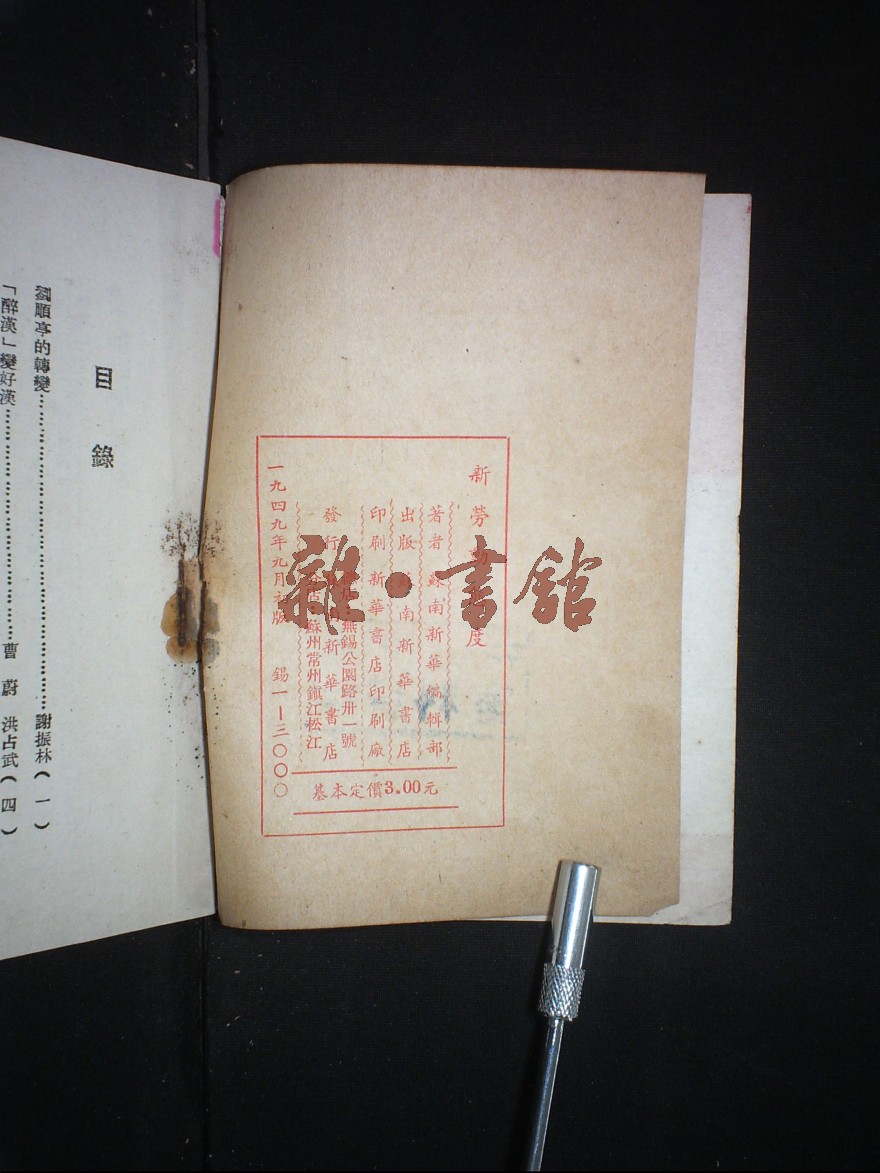 新勞動 度
著者 蘇南新華編輯部
出版 蘇南新華書店
印刷 新華書店印刷廠
無錫公園路卅一號
發行 新華書店
蘇州常州鎮江松江
一九四九年九月初版 錫一—三〇〇〇
基本定價3.00元
目錄
劉順亭的轉變 謝振林(一)
「醉漢」變好漢 曹蔚 洪占武(四)
雜·書館